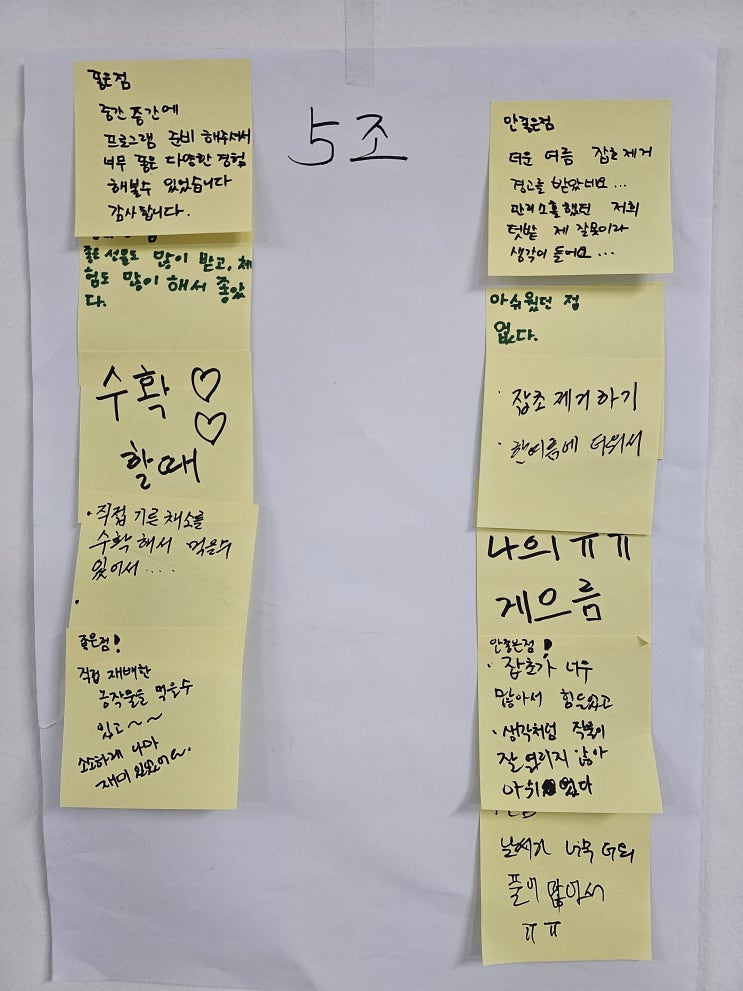 5조
좋은점
중간 중간에
프로그램 준비 해주셔서
너무 좋은 다양한 경험
해볼수 있었습니다
감사합니다.
좋은 선물도 많이 받고, 체
험도 많이 해서 좋았
다.
수확 ♡
♡
할때
· 직접 기른 채소를
수확해서 먹을수
있어서 .....
·
좋은점!
직접 재배한
농작물을 먹을수
있고~~
소소하게 나마
재미 있었어요.
안좋은점
더운 여름 잡초제거
경고를 받았네요...
관리소홀했던 저희
텃밭 제 잘못이라
생각이 들어요...
아쉬웠던 점
없다.
· 잡초 제거하기
· 한여름에 더워서
나의 ㅠㅠ
게으름
안좋은점!
· 잡초가 너무
많아서 힘들었고
· 생각처럼 작물이
잘 열리지 않아
아쉬웠다
날씨가 너무 더워
풀이 많아서
ㅠㅠ